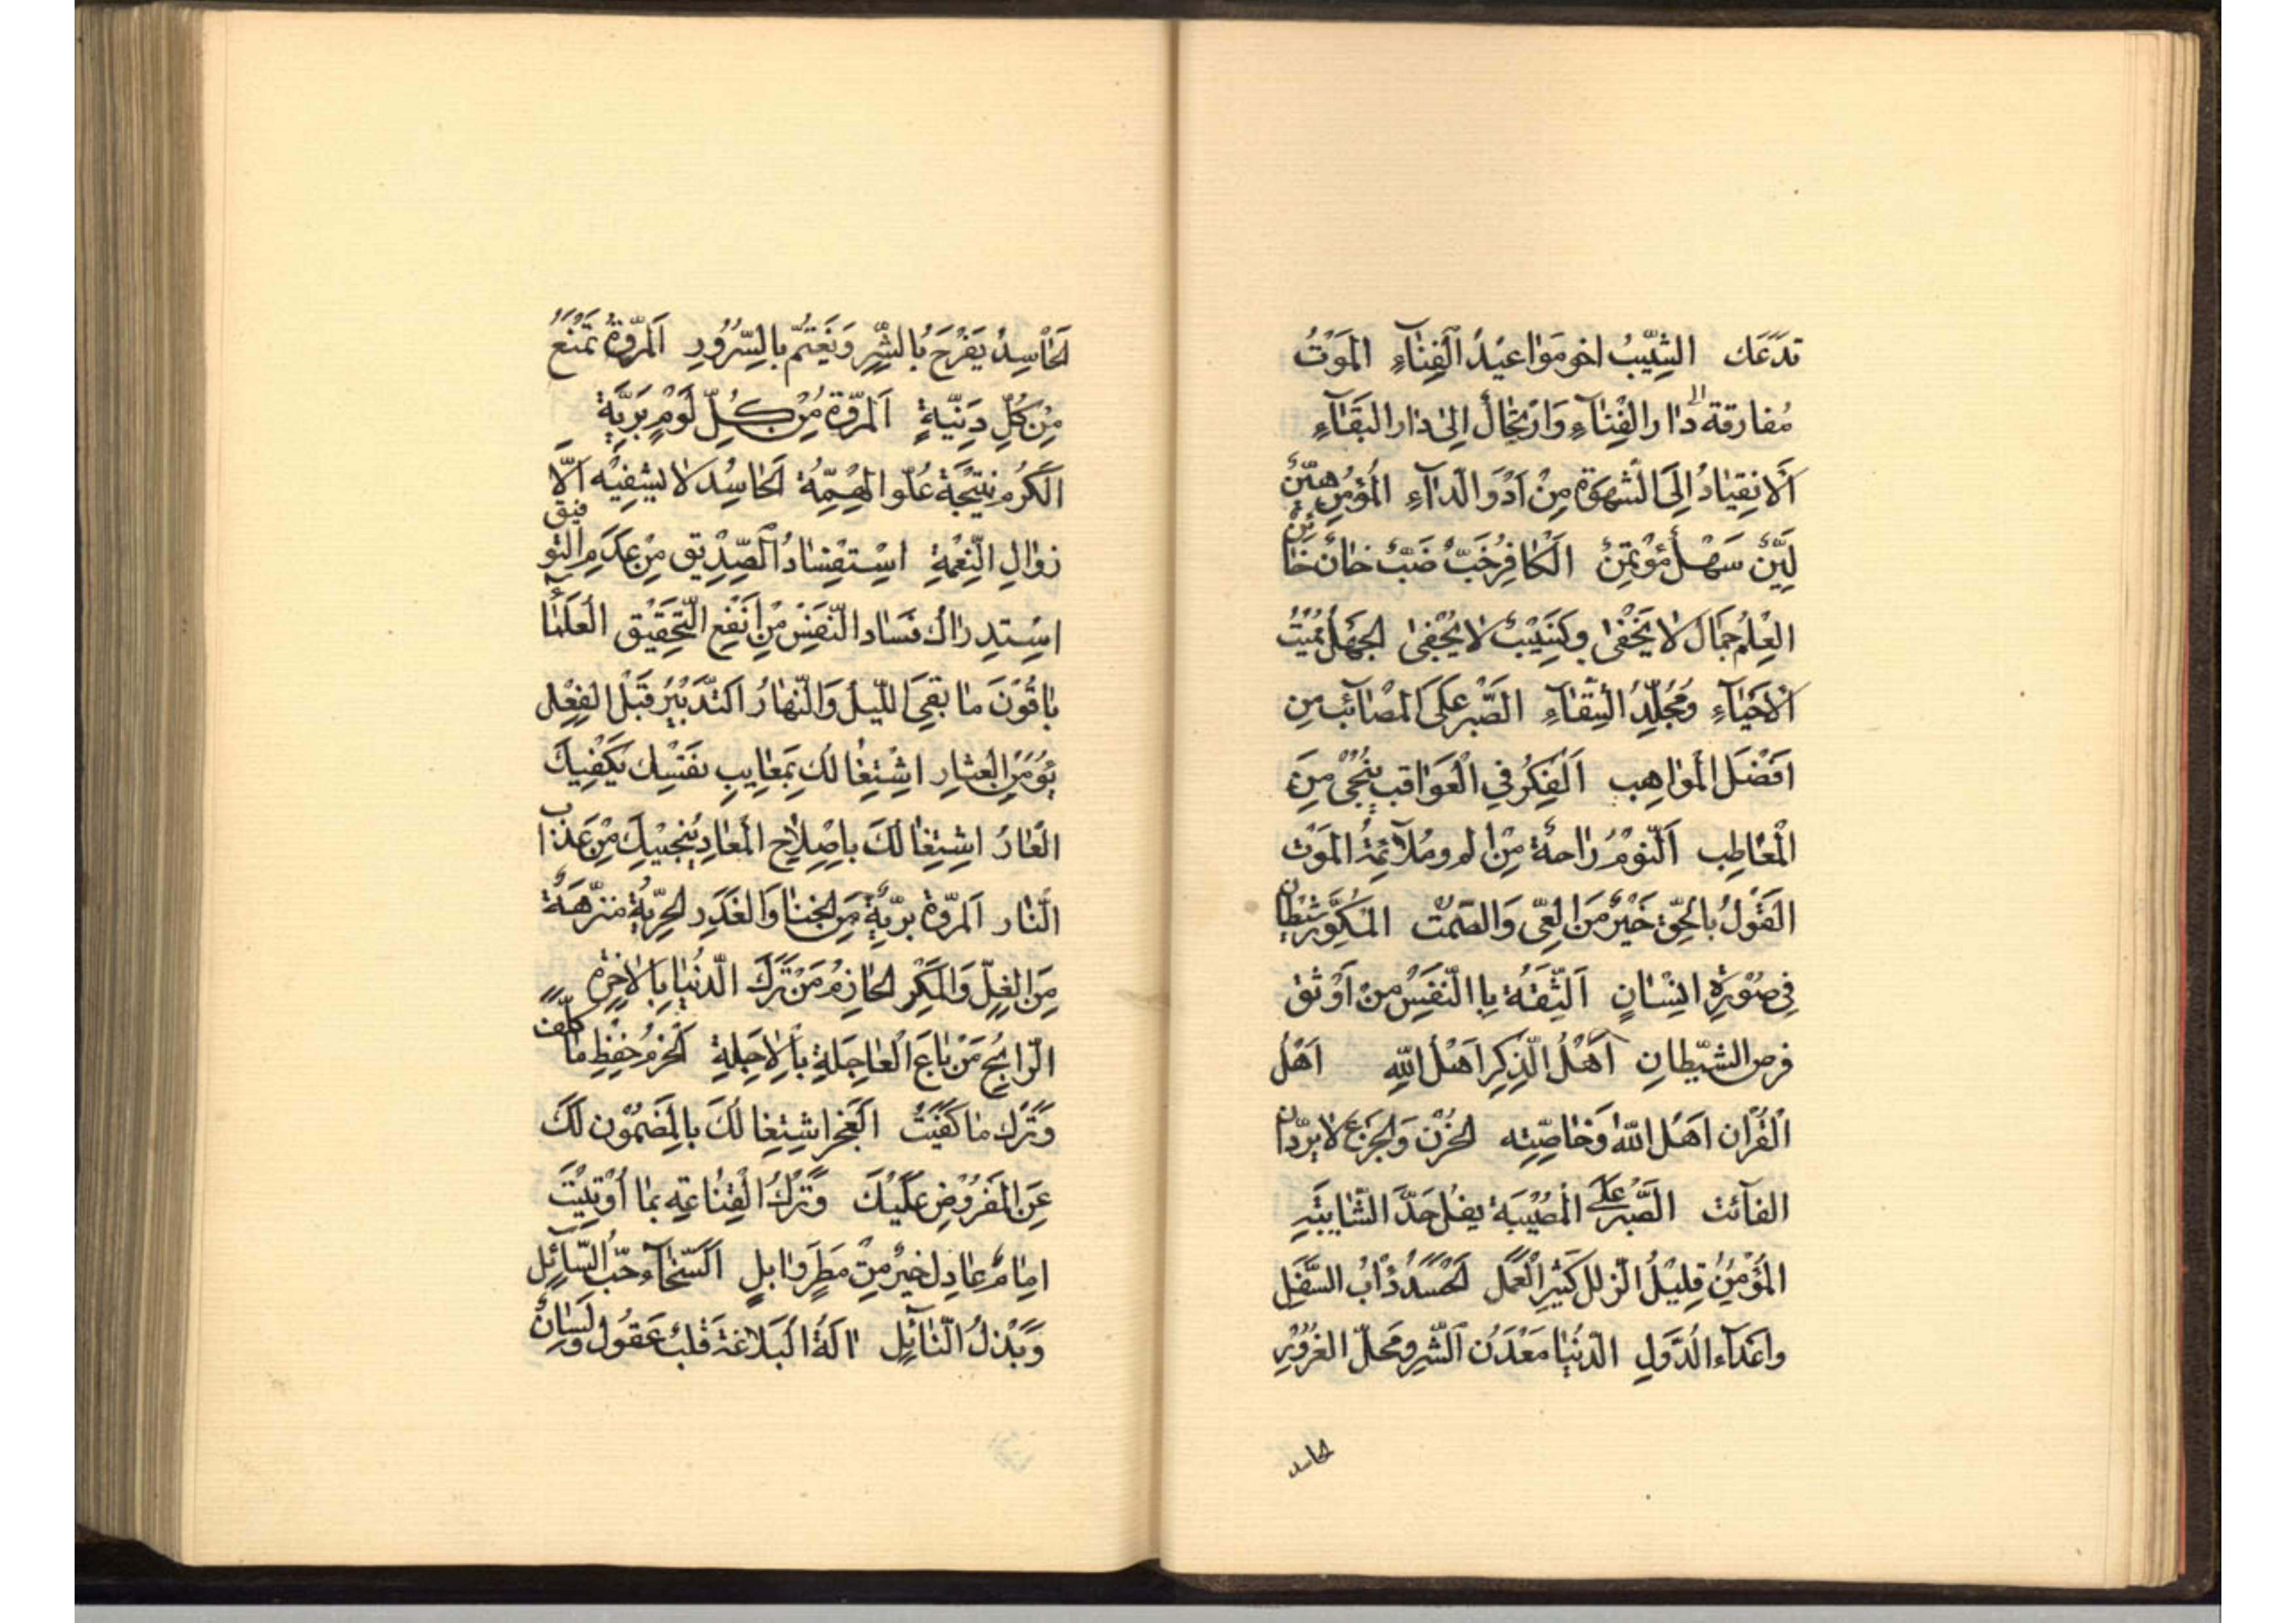 تدعك الشيب اخو مواعيد الفناء الموت
مفارقة دار الفناء وارتحال الى دار البقاء
الانقياد الى الشهوة من ادو الداء المؤمن هين
لين سهل مؤتمن الكافر خب ضب خان خائن
العلم جمال لا يخفى ونسيب لا يجفى الجهل مميت
الاحياء ومخلد الشقاء الصبر على المصائب من
افضل المواهب الفكر في العواقب ينجى من
المعاطب النوم راحة من الم وملائمة الموت
القول بالحق خير من العى والصمت المكور شيطان
في صورة انسان الثقة بالنفس من اوثق
فرص الشيطان اهل الذكر اهل الله اهل
القران اهل الله وخاصته الحزن والجزع لا يردان
الفائت الصبر على المصيبة يفل حد الشابتة
المؤمن قليل الزلل كثير العمل الحسد ذاب السفل
واعداء الدول الدنيا معدن الشر ومحل الغرور
الحاسد
الحاسد يفرح بالشر ويغتم بالسرور المروة تمنع
من كل دنية المروة من كل لوم برية
الكرم نتيجة علو الهمة الحاسد لا يشفيه الا
زوال النعمة استفساد الصديق من عدم التوفيق
استدراك فساد النفس من انفع التحقيق العلماء
باقون ما بقى الليل والنهار التدبير قبل الفعل
يؤمن العثار اشتغالك بمعايب نفسك يكفيك
العار اشتغالك باصلاح المعاد ينجيك من عذاب
النار المروة برية من الخنا والغدر الحرية منزهة
من الغل والمكر الحازم من ترك الدنيا بالاخرة
الرابح من باع العاجلة بالاجلة الحزم حفظ ما كلفت
وترك ما كفيت العجز اشتغالك بالمضمون لك
عن المفروض عليك وترك القناعة بما اوتيت
امام عادل خير من مطر وابل السخاء حب السائل
وبذل النائل الة البلاغة قلب عقول ولسان